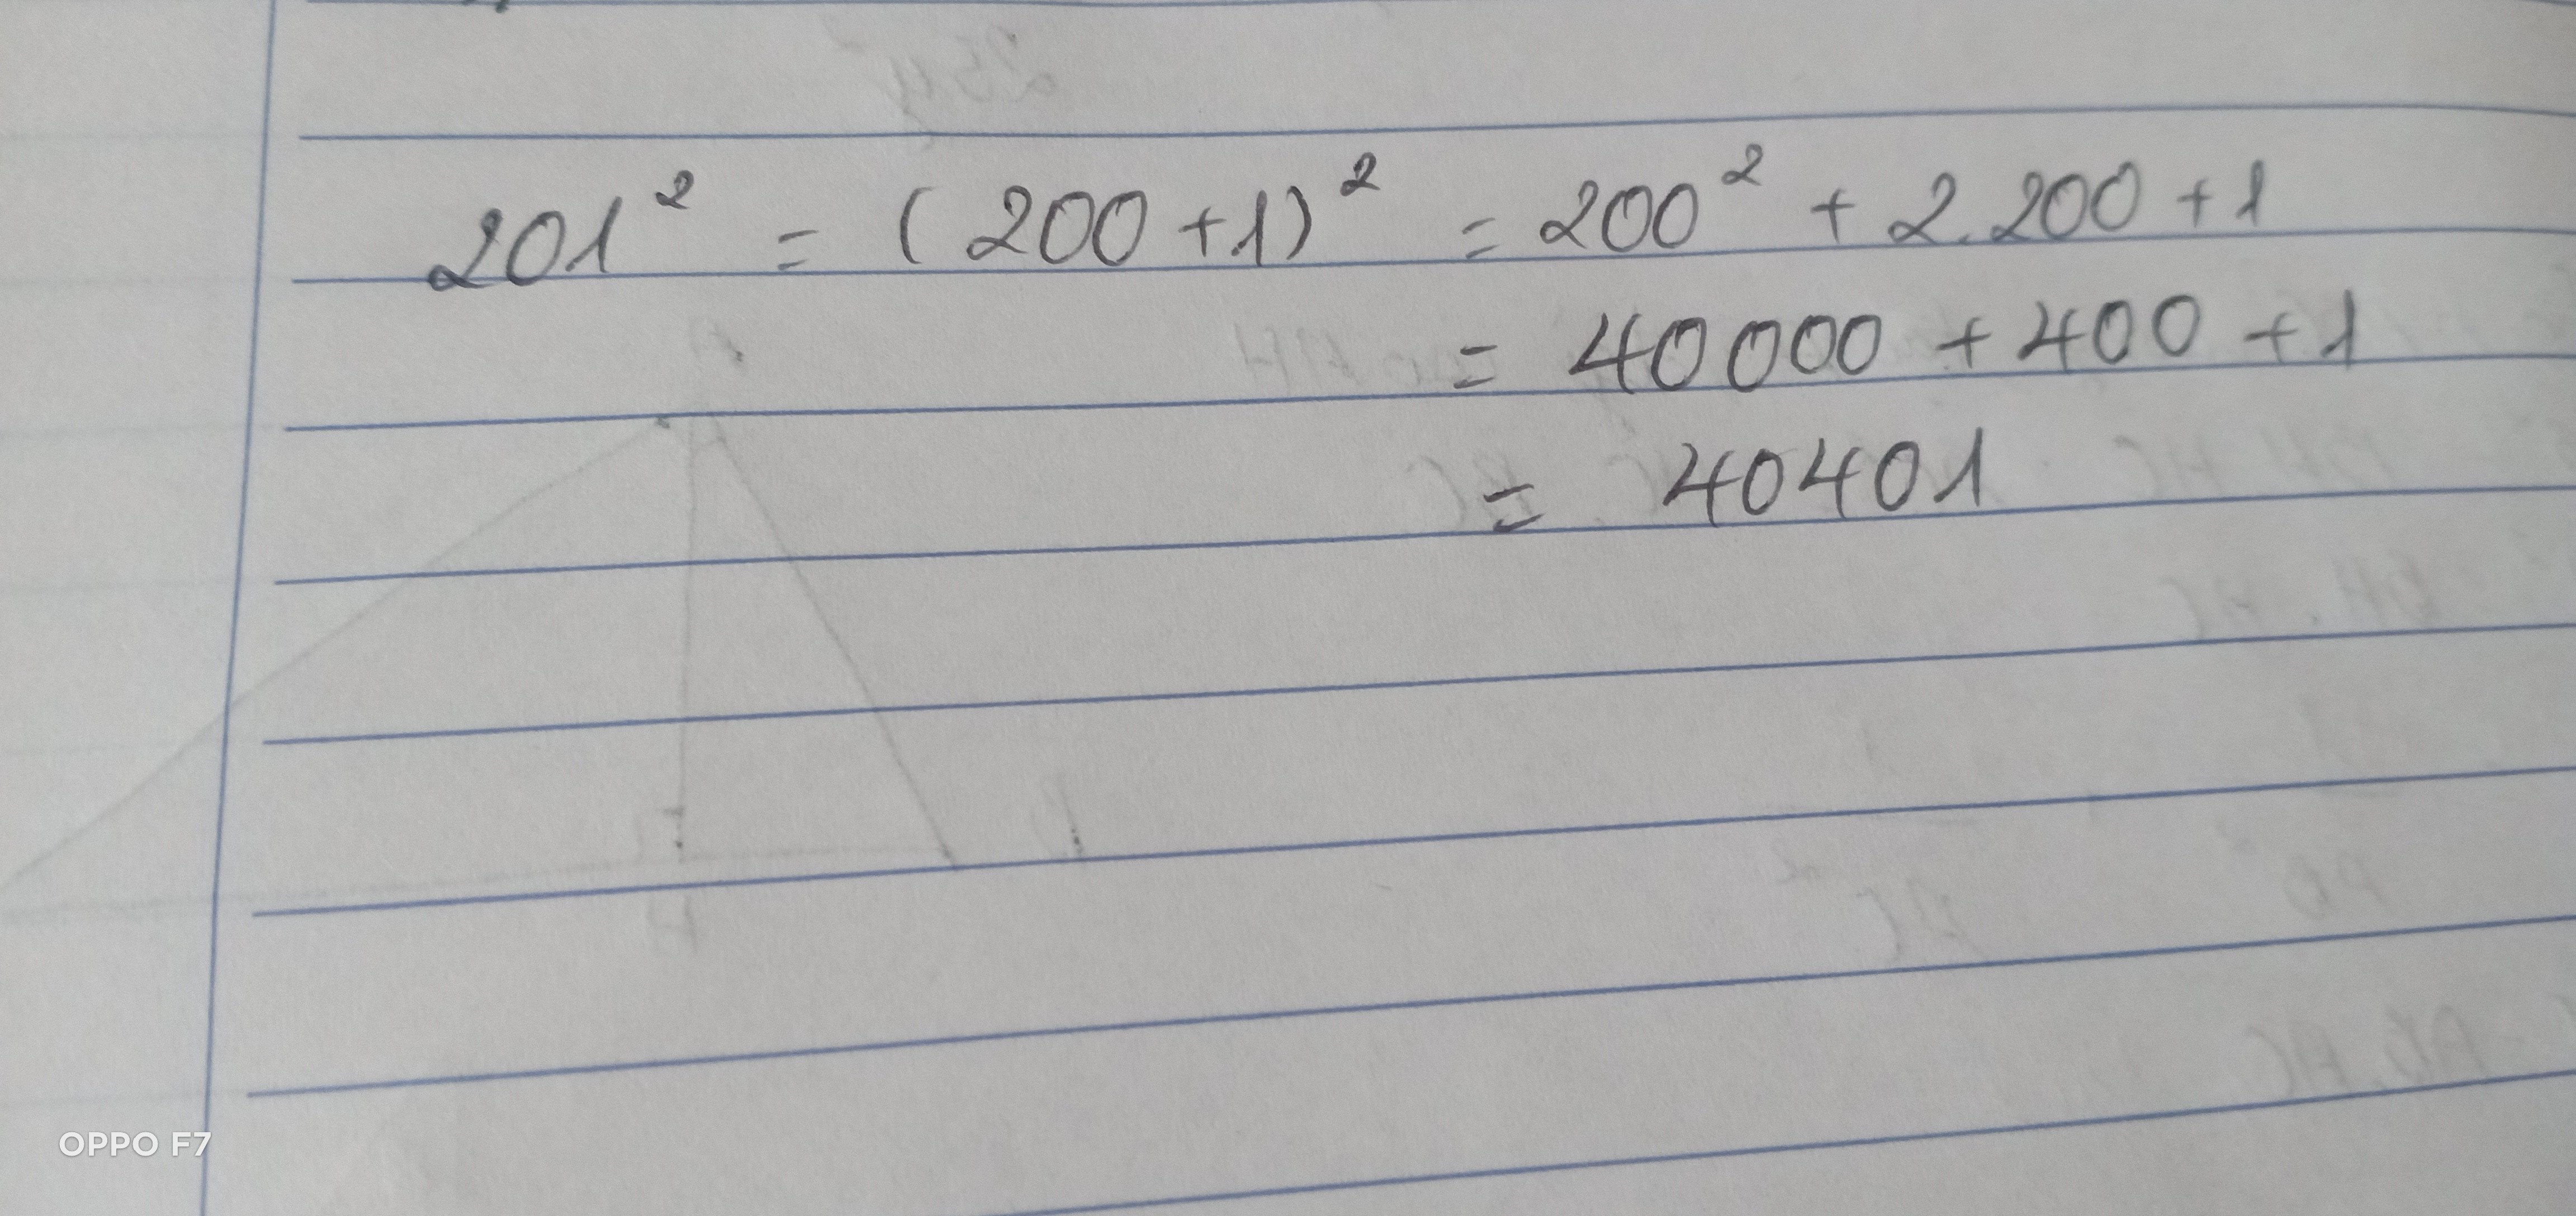 201² = (200+1)² = 200² + 2.200+1
= 40000 + 400 + 1
= 40401
OPPO F7